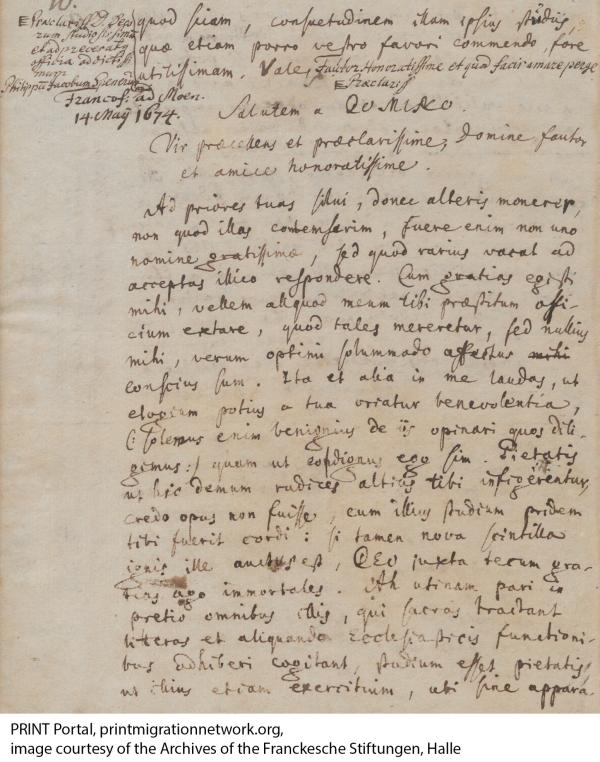 Praeclariss. T. Dep
rum studiosissimus
et ad precerato
officia addictiss
mum
Philippum Jacobum Spenerum
Francof. ad Moen.
14. Maÿ 1674.
quod suam, consuetudinem illam ipsius studiis,
quæ etiam porro vestro favori commendo, fore
utilissimam. Vale, Fautor Honoratissime et quod facis amare perge
Præclariss
Salutem a DOMINO.
Vir præcellens et præclarissime, Domine fautor
et amice honoratissime.
Ad priores tuas silui, donec alteris monerer,
non quod illas contemserim, fuere enim non uno
nomine gratissimæ, sed quod rarius vacat ad
acceptas illico respondere. Cum gratias egisti
mihi, vellem aliquod meum tibi præstitum offi-
cium extare, quod tales mereretur, sed nullius
mihi, verum optimi solummodo affectus
conscius sum. Ita et alia in me laudas, ut
elogium potius a tua oriatur benevolentia,
(: solemus enim benignius de iis opinari quos dili-
gimus :) quam ut ego sim. Pietatis
ut hic demum radices altius tibi infigerentur,
credo opus non fuisse, cum illius studium pridem
tibi fuerit cordi : si tamen nova scintilla
ignis ille auctus est, DEO juxta tecum gra-
tias ago immortales. Ah utinam pari in
pretio omnibus illis, qui sacras tractant
litteras et aliquando Ecclesiasticis functioni-
bus adhiberi cogitant, studium esset pietatis,
ut illius etiam exercitium, ubi sine appara-
PRINT Portal, printmigrationnetwork.org,
image courtesy of the Archives of the Franckesche Stiftungen, Halle